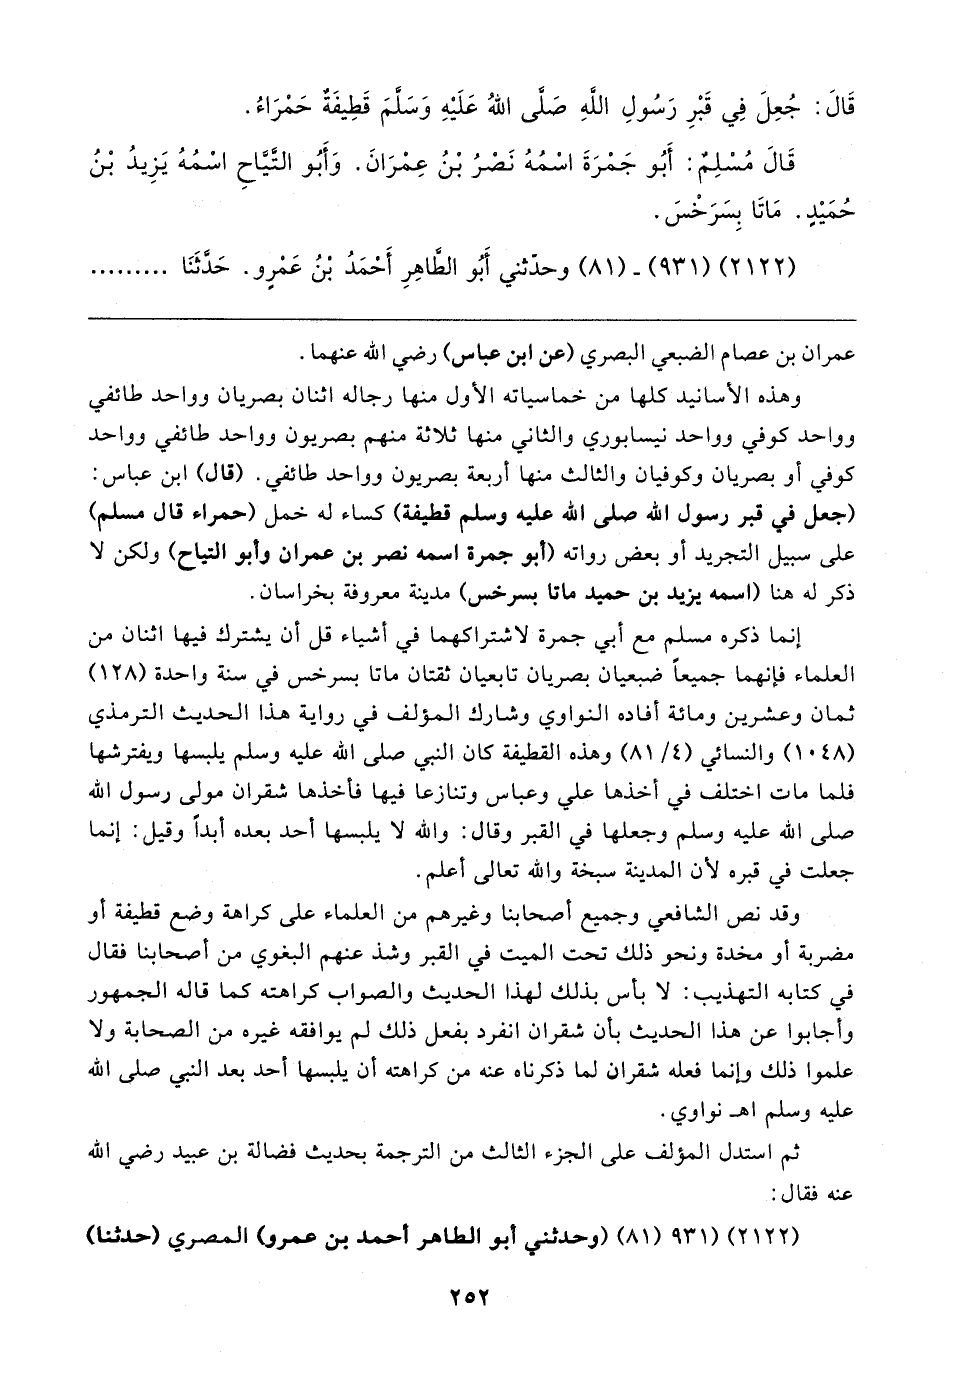 قَالَ: جُعِلَ فِي قَبْرِ رَسُولِ اللَّهِ صَلَّى اللهُ عَلَيْهِ وَسَلَّمَ قَطِيفَةٌ حَمْرَاءُ.
قَالَ مُسْلِمٌ: أَبُو جَمْرَةَ اسْمُهُ نَصْرُ بْنُ عِمْرَانَ. وَأَبُو التَّيَّاحِ اسْمُهُ يَزِيدُ بْنُ
حُمَيْدٍ. مَاتَا بِسَرَخْسَ.
(٢١٢٢) (٩٣١) ـ (٨١) وحدّثني أَبُو الطَّاهِرِ أَحْمَدُ بْنُ عَمْرٍو. حَدَّثَنَا .........
عمران بن عصام الضبعي البصري (عن ابن عباس) رضي الله عنهما.
وهذه الأسانيد كلها من خماسياته الأول منها رجاله اثنان بصريان وواحد طائفي
وواحد كوفي وواحد نيسابوري والثاني منها ثلاثة منهم بصريون وواحد طائفي وواحد
كوفي أو بصريان وكوفيان والثالث منها أربعة بصريون وواحد طائفي. (قال) ابن عباس:
(جعل في قبر رسول الله صلى الله عليه وسلم قطيفة) كساء له خمل (حمراء قال مسلم)
على سبيل التجريد أو بعض رواته (أبو جمرة اسمه نصر بن عمران وأبو التياح) ولكن لا
ذكر له هنا (اسمه يزيد بن حميد ماتا بسرخس) مدينة معروفة بخراسان.
إنما ذكره مسلم مع أبي جمرة لاشتراكهما في أشياء قل أن يشترك فيها اثنان من
العلماء فإنهما جميعاً ضبعيان بصريان تابعيان ثقتان ماتا بسرخس في سنة واحدة (١٢٨)
ثمان وعشرين ومائة أفاده النواوي وشارك المؤلف في رواية هذا الحديث الترمذي
(١٠٤٨) والنسائي (٤/ ٨١) وهذه القطيفة كان النبي صلى الله عليه وسلم يلبسها ويفترشها
فلما مات اختلف في أخذها علي وعباس وتنازعا فيها فأخذها شقران مولى رسول الله
صلى الله عليه وسلم وجعلها في القبر وقال: والله لا يلبسها أحد بعده أبداً وقيل: إنما
جعلت في قبره لأن المدينة سبخة والله تعالى أعلم.
وقد نص الشافعي وجميع أصحابنا وغيرهم من العلماء على كراهة وضع قطيفة أو
مضربة أو مخدة ونحو ذلك تحت الميت في القبر وشذ عنهم البغوي من أصحابنا فقال
في كتابه التهذيب: لا بأس بذلك لهذا الحديث والصواب كراهته كما قاله الجمهور
وأجابوا عن هذا الحديث بأن شقران انفرد بفعل ذلك لم يوافقه غيره من الصحابة ولا
علموا ذلك وإنما فعله شقران لما ذكرناه عنه من كراهته أن يلبسها أحد بعد النبي صلى الله
عليه وسلم اهـ نواوي.
ثم استدل المؤلف على الجزء الثالث من الترجمة بحديث فضالة بن عبيد رضي الله
عنه فقال:
(٢١٢٢) (٩٣١ (٨١) (وحدثني أبو الطاهر أحمد بن عمرو) المصري (حدثنا)
٢٥٢